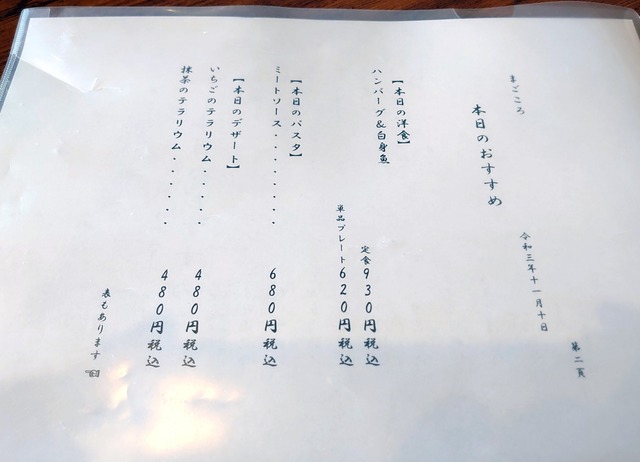 まごころ
本日のおすすめ
令和三年十一月十日
第二頁
【本日の洋食】
ハンバーグ&白身魚
定食930円税込
単品プレート620円税込
【本日のパスタ】
ミートソース・・・・・・・680円税込
【本日のデザート】
いちごのテラリウム・・・・・480円税込
抹茶のテラリウム・・・・・・480円税込
表もあります☞